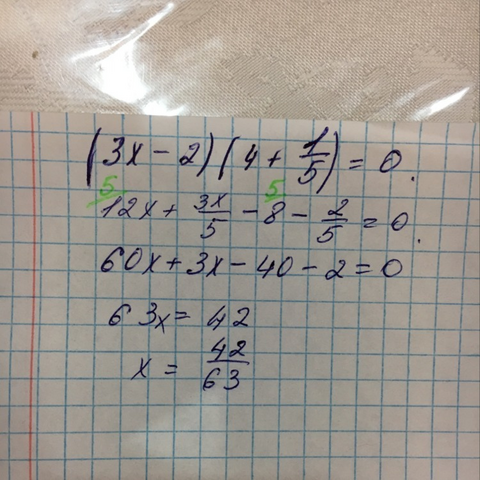 (3x - 2)(4 + 1/5) = 0.
5 5
12x + 3x/5 - 8 - 2/5 = 0.
60x + 3x - 40 - 2 = 0
63x = 42
x = 42/63